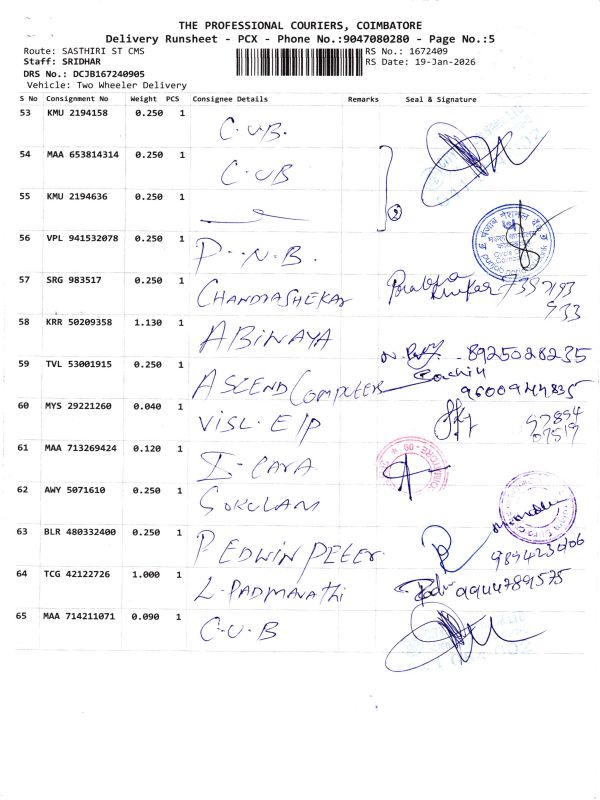 THE PROFESSIONAL COURIERS, COIMBATORE
Delivery Runsheet - PCX - Phone No.:9047080280 - Page No.:5
Route: SASTHIRI ST CMS RS No.: 1672409
Staff: SRIDHAR RS Date: 19-Jan-2026
DRS No.: DCJB167240905
Vehicle: Two Wheeler Delivery
S No Consignment No Weight PCS Consignee Details Remarks Seal & Signature
53 KMU 2194158 0.250 1 C.U.B.
54 MAA 653814314 0.250 1 C.UB
55 KMU 2194636 0.250 1
56 VPL 941532078 0.250 1 P..N.B.
57 SRG 983517 0.250 1 CHANDRASHEKAR
58 KRR 50209358 1.130 1 ABINAYA 8925028235
59 TVL 53001915 0.250 1 ASCEND COMPUTER 9600944835
60 MYS 29221260 0.040 1 VISL. E/P
61 MAA 713269424 0.120 1
62 AWY 5071610 0.250 1 GOKULAM
63 BLR 480332400 0.250 1 P EDWIN PETER
64 TCG 42122726 1.000 1 L. PADMAVATHI 9944789575
65 MAA 714211071 0.090 1 C.U.B